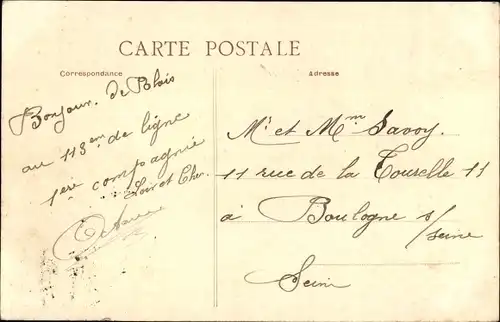 CARTE POSTALE
Correspondance
Adresse
Bonjour. de Blois
au 113em de ligne
1ère compagnie
Loir et Cher
Octave
Mr et Mm Savoy.
11 rue de la Tourelle 11
à Boulogne s/
/seine
Seine